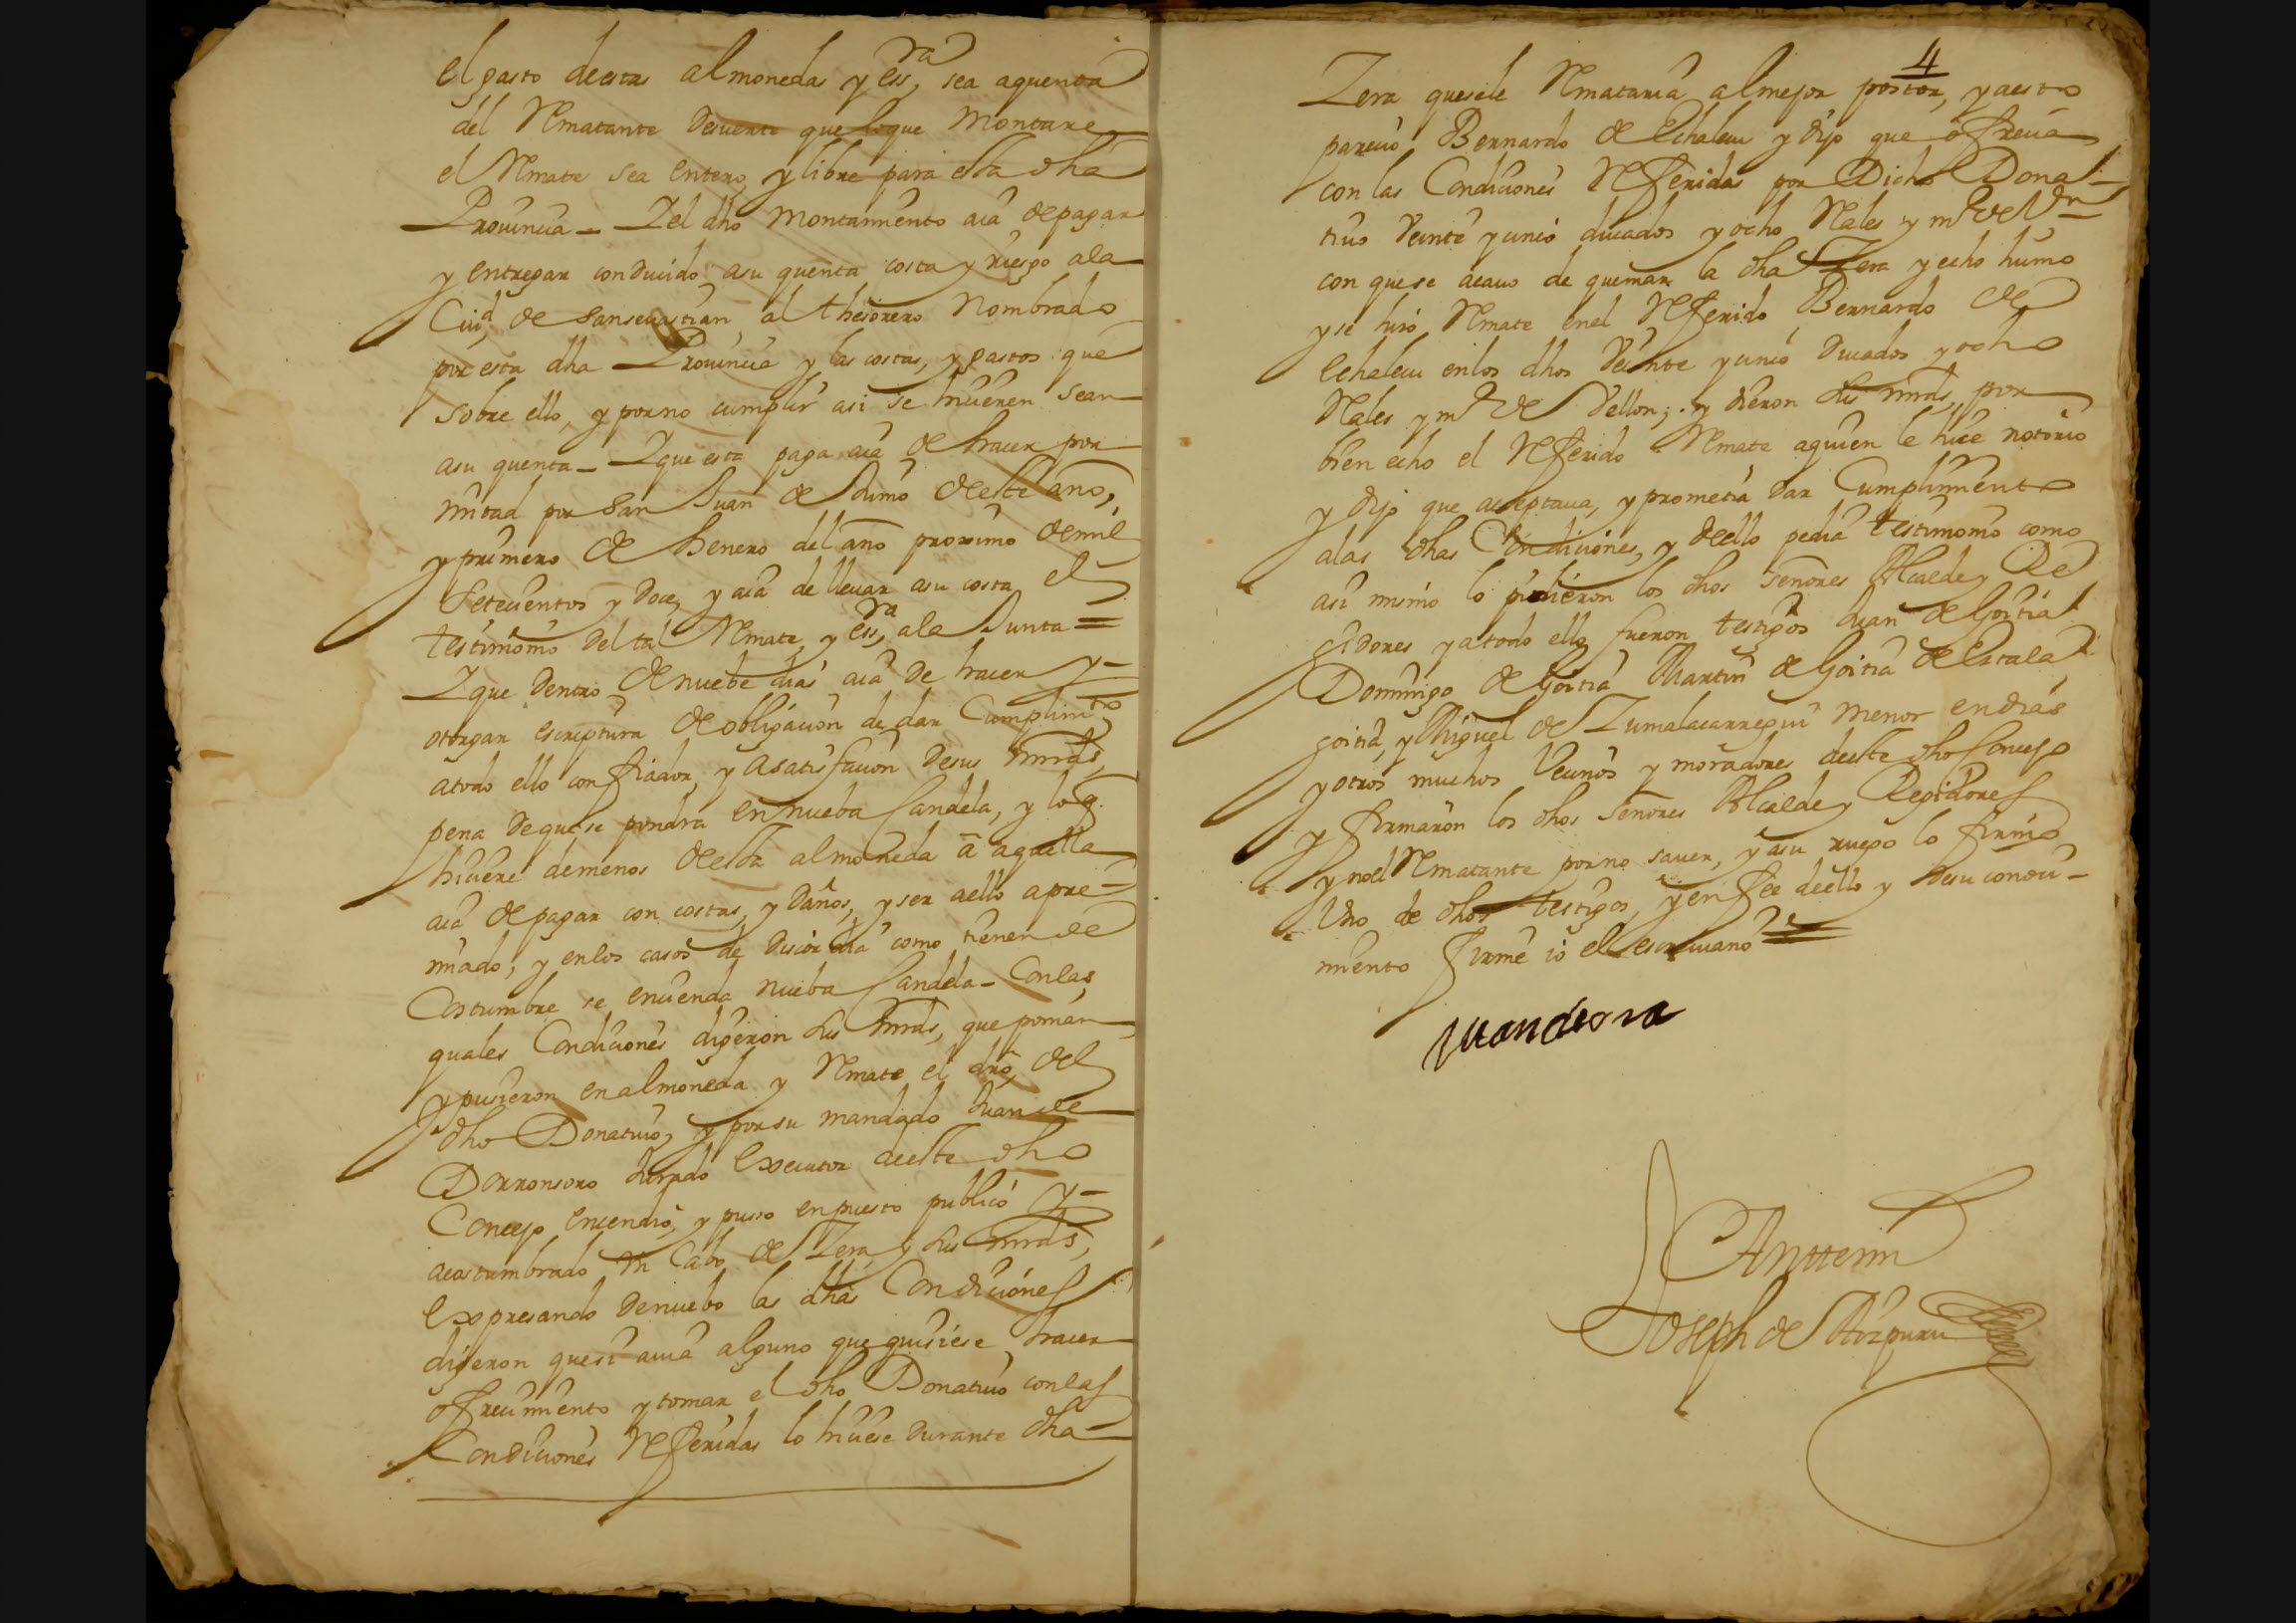 el gasto de estas almonedas y ess.ra sea a quenta
del Rematante de suerte que lo que Montare
el Remate sea entero, y libre para esta dha
Prouincia – Y el dho Montamiento aia de pagar
y entregar conducido a su quenta costa y riesgo a la
Ciud. de San seuastian al thesorero Nombrado
por esta dha Prouincia y las costas, y gastos que
sobre ello, y por no cumplir asi se hiuieren sean
a su quenta – Y que esta paga aia de hacer por
mitad por San Juan de Junio de este año,
y primero de henero del año proximo de mil
Setecientos y Doce, y aia de lleuar a su costa el
testimonio del tal Remate, y ess.ra a la Junta =
Y que dentro de nuebe dias aia de hacer y –
otorgar escriptura de obligacion de dar Cumplim.to
a todo ello con fiador, y a satisfacion de sus mrds,
pena de que se pondra en nueba Candela, y lo q.
hiuiere de menos de esta almoneda â aquella
aia de pagar con costas, y daños, y ser a ello apre-
miado, y en los casos de discordia como tienen de
Costumbre se encienda nueba Candela – Con las
quales Condiciones digeron sus mrds, que ponian
y pusieron en almoneda y Remate el dho del
dho Donatiuo, y por su mandado Juan de
Dorronsoro Jurado executor de este dho
Concejo encendio, y puso en puesto publico y –
acostumbrado un Cabo de Zera, y sus mrds,
expresando de nuebo las dhas Condiciones
digeron que si auia alguno que quisiese hacer
ofrecimiento y tomar el dho Donatiuo con las
Condiciones Referidas lo hiciese durante dha
4
Zera que se le Remataria al mejor postor, y a esto
parecio Bernardo de Echalecu y dijo que ofrecia
con las Condiciones Referidas por Dicho Dona-
tiuo Veinte y cinco ducados y ocho Reales y m.o de Vn
con que se acauo de quemar la dha Zera y echo humo
y se hizo Remate en el Referido Bernardo de
Echalecu en los dhos Veinte y cinco Ducados y ocho
Reales y m.o de Vellon; y dieron sus mrds, por
bien echo el Referido Remate a quien le hice notorio
y dijo que aceptaua, y prometia dar Cumplimiento
a las dhas Condiciones, y de ello pedia testimonio como
asi mismo lo pidieron los dhos señores Alcalde y Re
gidores y a todo ello fueron testigos Juan de Goitia
Domingo de Goitia Martin de Goitia de Escala
goitia, y Miguel de Zumalacarregui menor en dias
y otros muchos Vecinos y moradores de este dho Concejo
y firmaron los dhos señores Alcalde y Regidores
y no el Rematante por no sauer, y a su ruego lo firmo
Uno de dhos testigos, y en fee de ello y de su conoci-
miento firme io el escriuano =
Anttemi
Joseph de Aizpuru